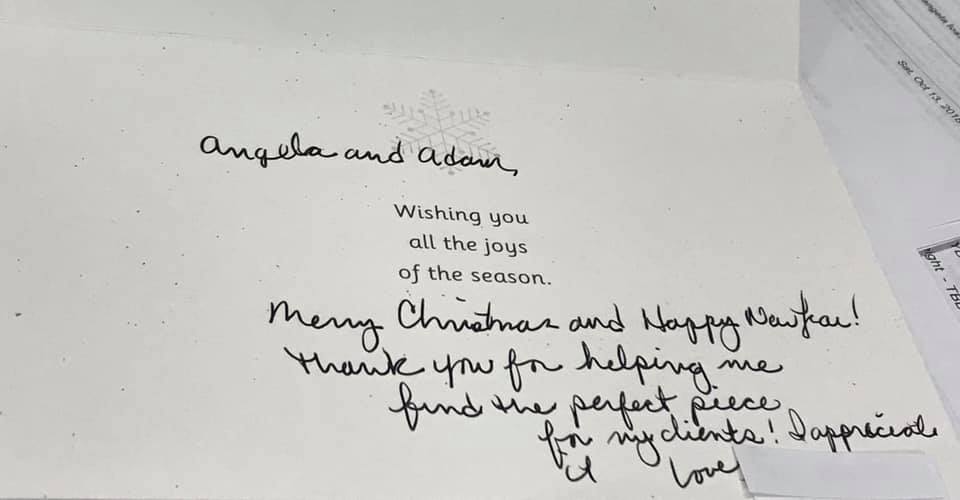 Angela and Adam,
Wishing you
all the joys
of the season.
Merry Christmas and Happy New Year!
Thank you for helping me
find the perfect piece
for my clients! I appreciate
it Love
Sat, Oct 13, 2018
ight - TBD